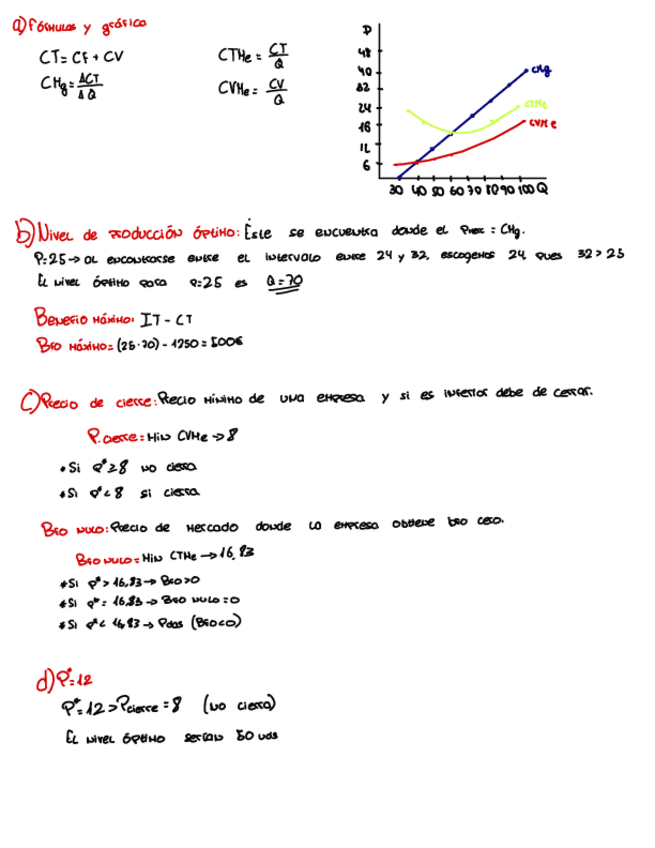 a) Fórmulas y gráfico
CT = CF + CV
CMg = ΔCT / ΔQ
CTMe = CT / Q
CVMe = CV / Q
P
48
40
32
24
16
12
6
CMg
CTMe
CVMe
30 40 50 60 70 80 90 100 Q
b) Nivel de producción óptimo: Éste se encuentra donde el Pmec = CMg.
P=25 → al encontrarse entre el intervalo entre 24 y 32, escogemos 24 pues 32 > 25
El nivel óptimo para p=25 es Q=70
Benefio máximo: IT - CT
Bfo máximo = (25·70) - 1250 = 500€
c) Precio de cierre: Precio mínimo de una empresa y si es inferior debe de cerrar.
P.cierre = Min CVMe → 8
• Si P* ≥ 8 no cierra
• Si P* < 8 si cierra
Bfo nulo: Precio de mercado donde la empresa obtiene bfo cero.
Bfo nulo = Min CTMe → 16,83
* Si P* > 16,83 → Bfo>0
* Si P* = 16,83 → Bfo nulo = 0
* Si P* < 16,83 → Pdas (Bfo<0)
d) P*=12
P*=12 > Pcierre = 8 (no cierra)
El nivel óptimo serían 50 uds